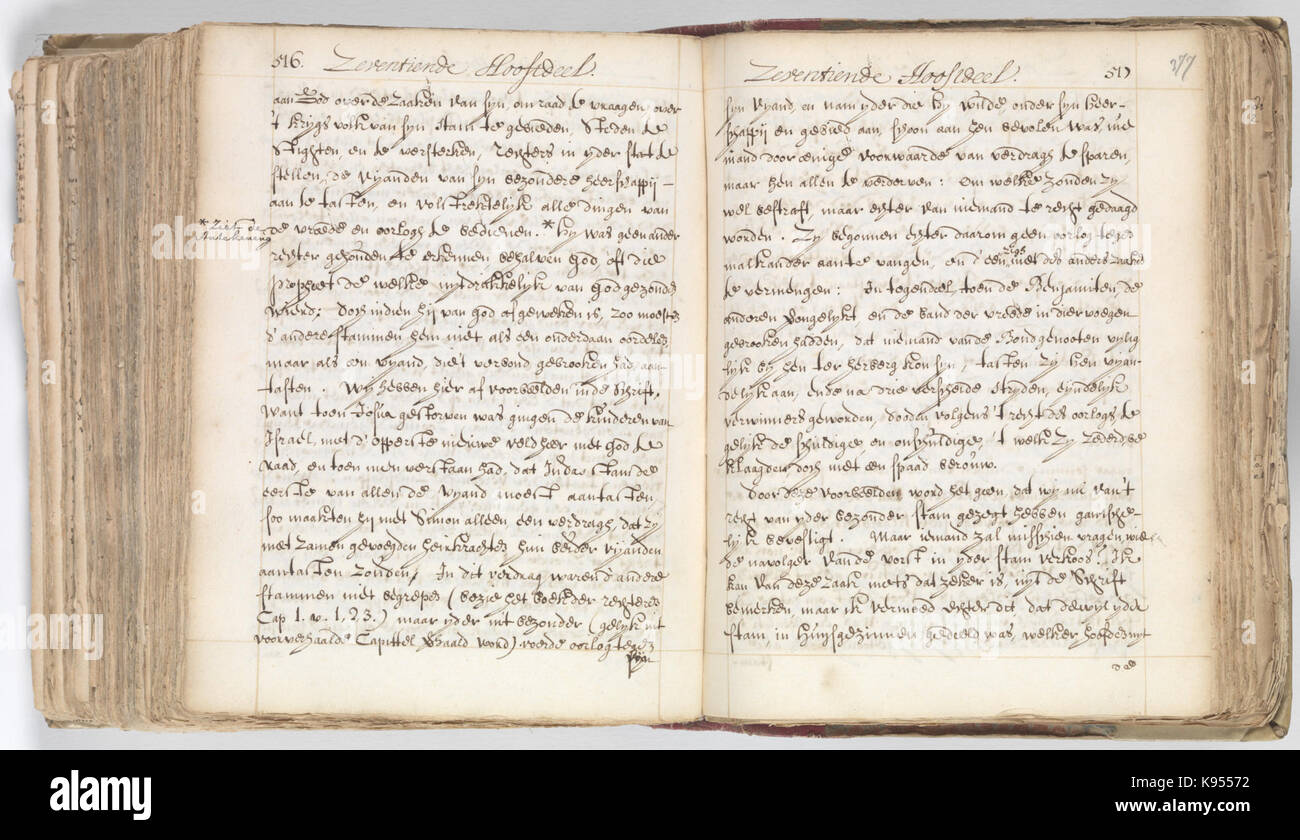 516. Zeventiende Hoofdeel.
aan God over de zaaken van syn, om raad te vraagen, over
't krygs volk van syn stam te gebieden, steden te
stighten, en te versterken, rechters in yder stat te
stellen, de vyanden van syn bezondere heerschappij
aan te tasten, en volstrektelijk alle dingen van
de vreede en oorlogh te bedienen. * hy was geen ander
* Ziet de
Aantekening
rechter gehouden te erkennen behalven God, oft die
propheet de welke uytdrukkelyk van God gezonde
wierd: doch indien hij van God afgeweken is, zoo moesten
d'andere stammen hem niet als een onderdaan oordelen
maar als een vyand, die 't verbond gebrooken had, aan-
tasten. Wy hebben hier af voorbeelden in de Schrift.
Want toen Josua gestorven was gingen de kinderen van
Israel, niet d'opperste nieuwe veldheer met God te
raad, en toen men verstaan had, dat Judas stam de
eerste van allen de vyand moest aantasten,
soo maakten hij met Simon alleen een verdragh, dat zy
met zamen gevoegden hun krachten hun beider vyanden
aantasten zouden, In dit verdrag waren d'andere
stammen niet begrepen (bezie het boek der rechteren
Cap 1. v. 1, 2, 3.) maar yder int bezonder (gelyk in't
voorverhaalde Capittel verhaald word) voerde oorlog tegen
syn
Zeventiende Hoofdeel. 517 277
syn vyand, en nam yder die hy wilde onder syn heer-
schappij en genaad aan, schoon aan hen bevolen was, nie
mand door eenige voorwaarde van verdragh te sparen,
maar hen allen te verderven: Om welke zonden zy
wel bestraft, maar echter van niemand te recht gedaagd
worden. Zy begonnen echter daarom geen oorlog tegen
malkander aan te vangen, en d'een zigh met des anders zaake
te vermengen: In tegendeel, toen de Benjamiten, de
anderen ongelykt en de band der vreede in dier voegen
gebrooken hadden, dat niemand van de Bondgenooten vylig-
lyk by hen ter herberg kon syn, tasten zy hen vyan-
delyk aan, ende na drie verscheide strijden, eyndelyk
verwinners geworden, dooden volgens 't recht des oorlogs, te
gelyk de schuldige en onschuldige 't welk zy zederd be
klaagden doch met een spaad berouw.
Door deze voorbeelden word het geen, dat wy nu van't
recht van yder bezonder stam gezegt hebben gantsche-
lyk bevestigt. Maar iemand zal misschien vragen, wie
de navolger van de vorst in yder stam verkoos? Ik
kan van deze zaak niets dat zeker is, uyt de Schrift
bemerken, maar ik vermoed echter dit dat dewyl yder
stam, in huysgezinnen gedeeld was, welker hoofden uyt
de
alamy
Image ID: K95572
www.alamy.com